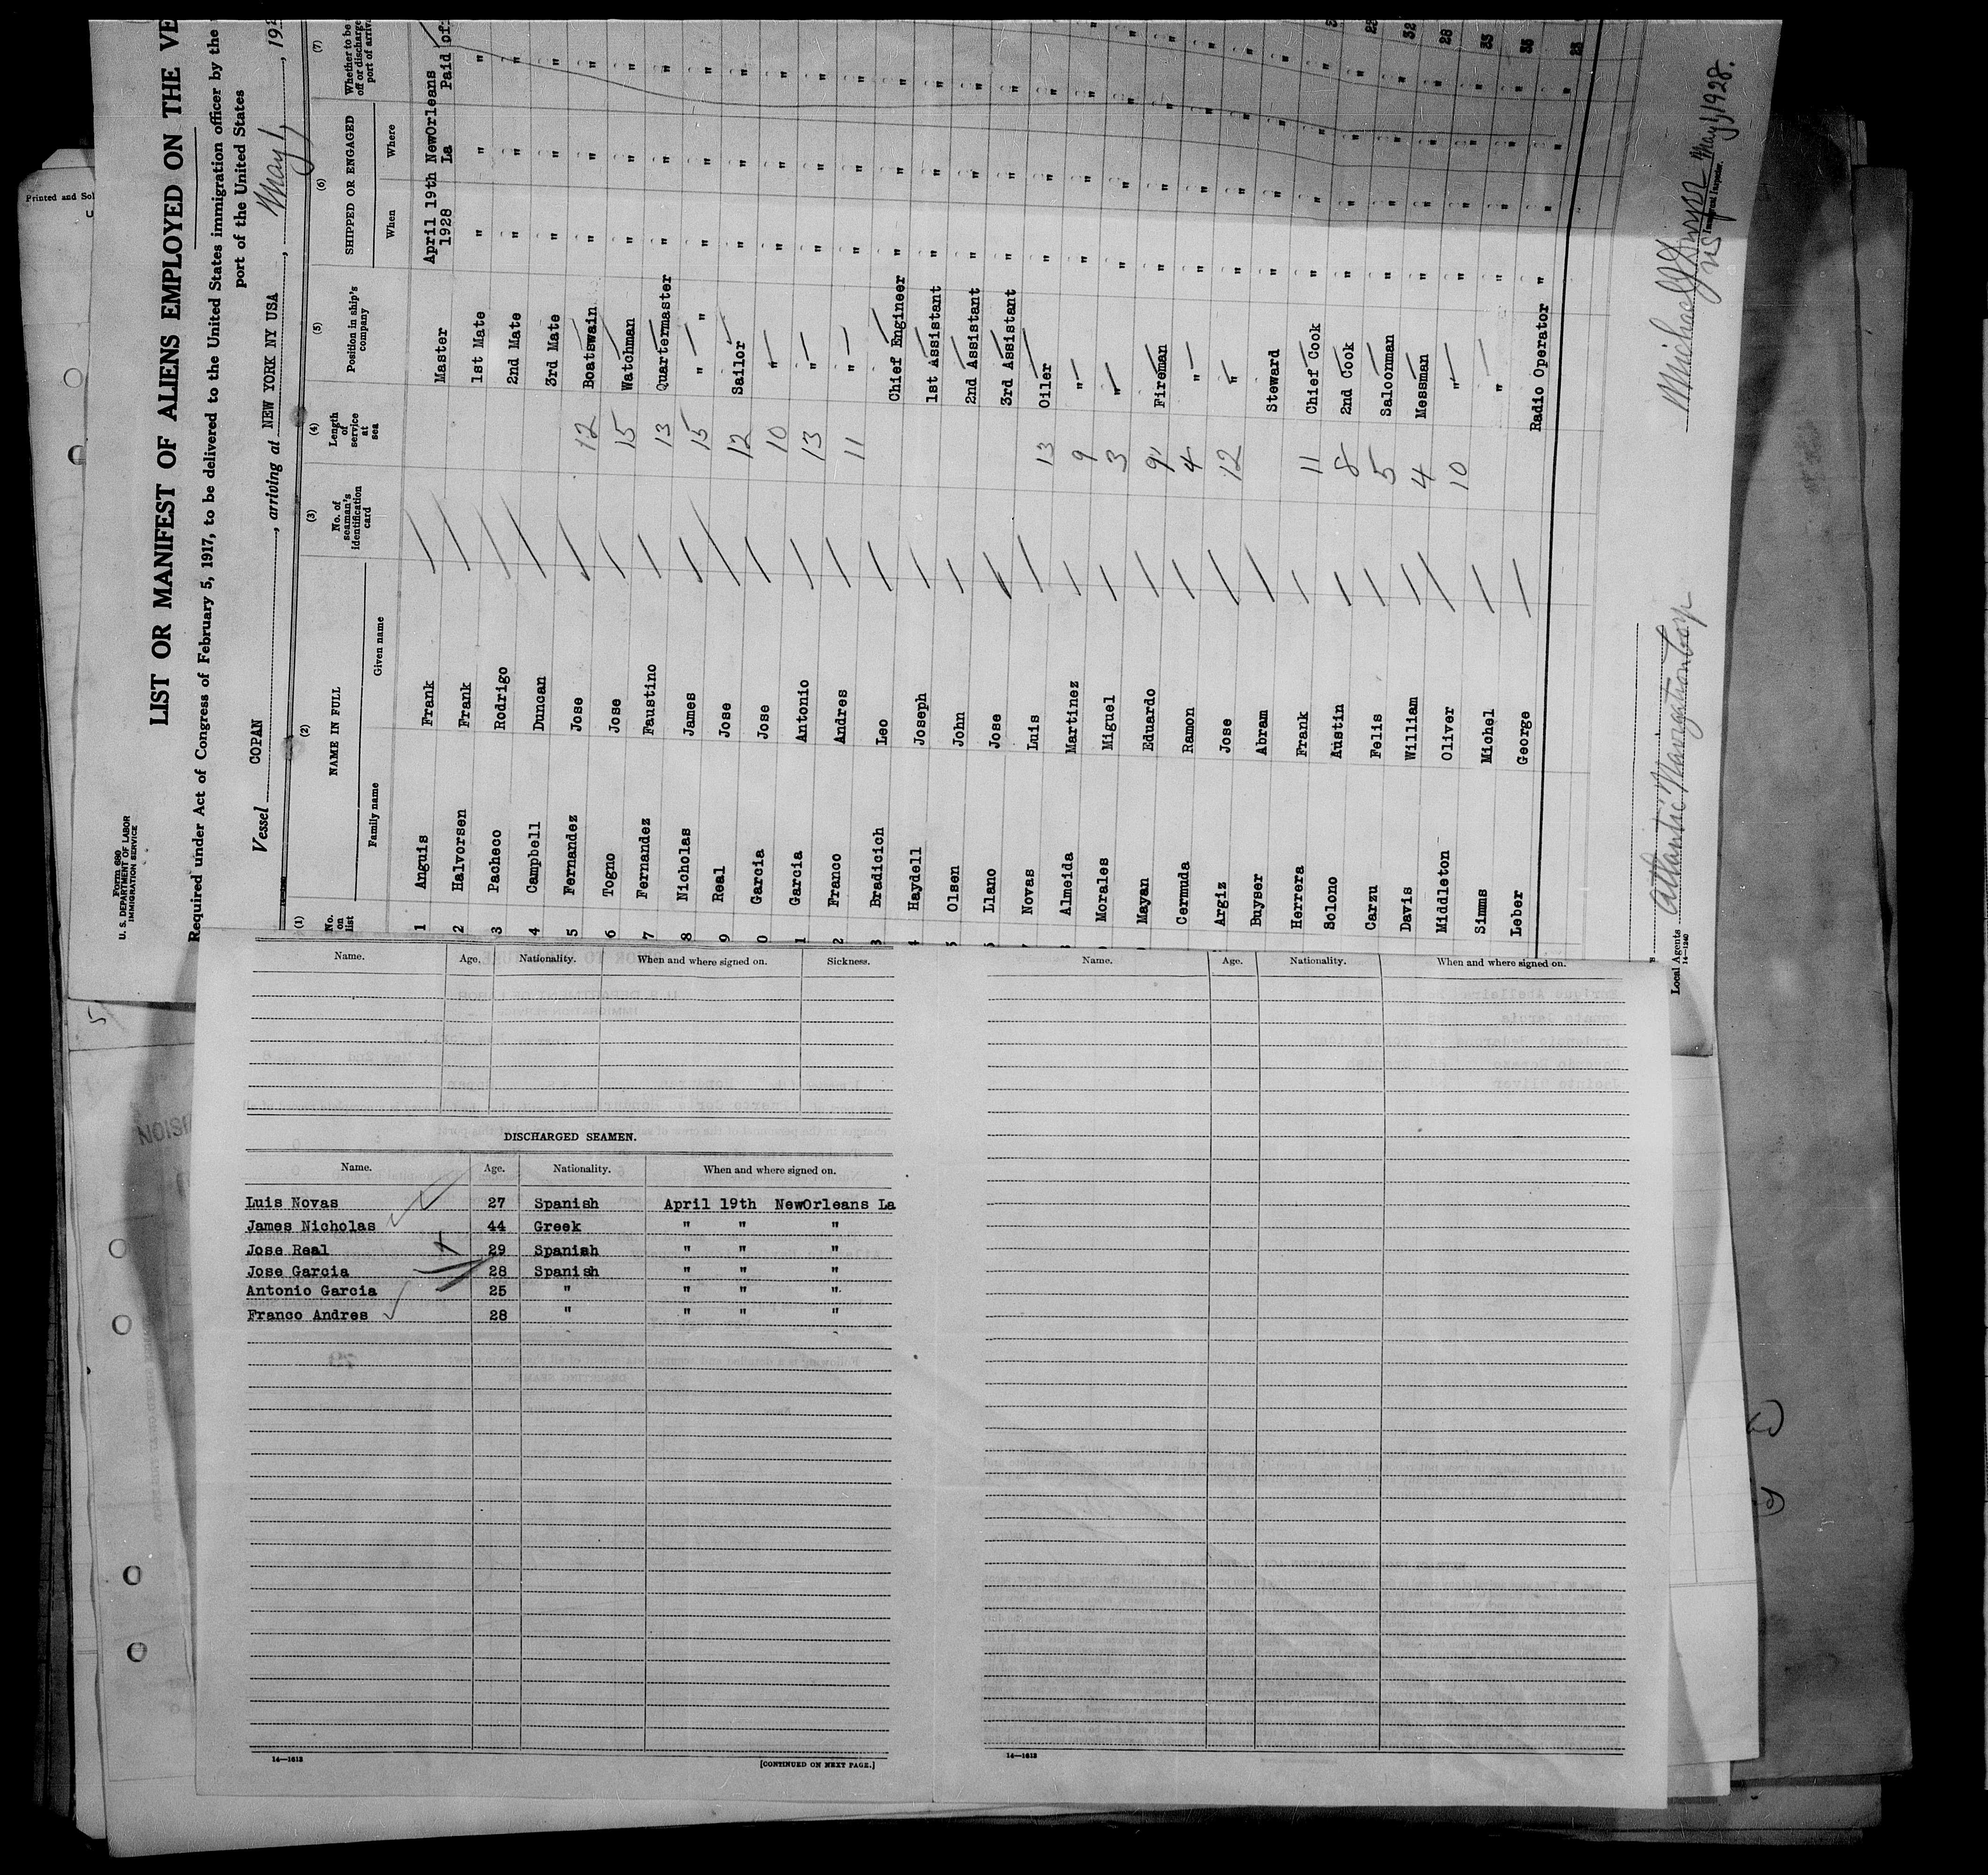 Form 680
U. S. DEPARTMENT OF LABOR
IMMIGRATION SERVICE
LIST OR MANIFEST OF ALIENS EMPLOYED ON THE VE
Required under Act of Congress of February 5, 1917, to be delivered to the United States immigration officer by the
port of the United States
Vessel COPAN, arriving at NEW YORK NY USA, May 1, 192
(1) (2) (3) (4) (5) (6) (7)
No. on list
NAME IN FULL
Family name Given name
No. of seaman's identification card
Length of service at sea
Position in ship's company
SHIPPED OR ENGAGED
When Where
Whether to be off or discharge port of arriv
1 Anguis Frank Master April 19th 1928 NewOrleans La Paid off
2 Halvorsen Frank 1st Mate " " "
3 Pacheco Rodrigo 2nd Mate " " "
4 Campbell Duncan 3rd Mate " " "
5 Fernandez Jose 12 Boatswain " " "
6 Togno Jose 15 Watchman " " "
7 Fernandez Faustino 13 Quartermaster " " "
8 Nicholas James 15 " " " " "
9 Real Jose 12 Sailor " " "
0 Garcia Jose 10 " " " "
1 Garcia Antonio 13 " " " "
2 Franco Andres 11 " " " "
3 Bradicich Leo Chief Engineer " " "
4 Haydell Joseph 1st Assistant " " "
5 Olsen John 2nd Assistant " " "
6 Llano Jose 3rd Assistant " " "
Novas Luis 13 Oiler " " "
Almeida Martinez 9 " " " "
Morales Miguel 3 " " " "
Mayan Eduardo 9 Fireman " " "
Cermuda Ramon 4 " " " "
Argiz Jose 12 " " " "
Buyser Abram Steward " " "
Herrera Frank 11 Chief Cook " " "
Solono Austin 8 2nd Cook " " "
Carzu Felis 5 Saloonman " " "
Davis William 4 Messman " " "
Middleton Oliver 10 " " " "
Simms Michel " " " "
Leber George Radio Operator " " "
Local Agents Atlantic Navigation Corp
14—1240
Michael
Immigrant Inspector.
May 1, 1928.
Printed and Sol
Name. Age. Nationality. When and where signed on. Sickness.
DISCHARGED SEAMEN.
Name. Age. Nationality. When and where signed on.
Luis Novas 27 Spanish April 19th NewOrleans La
James Nicholas 44 Greek " " "
Jose Real 29 Spanish " " "
Jose Garcia 28 Spanish " " "
Antonio Garcia 25 " " " "
Franco Andres 28 " " " "
14—1613
[CONTINUED ON NEXT PAGE.]
Name. Age. Nationality. When and where signed on.
14—1613